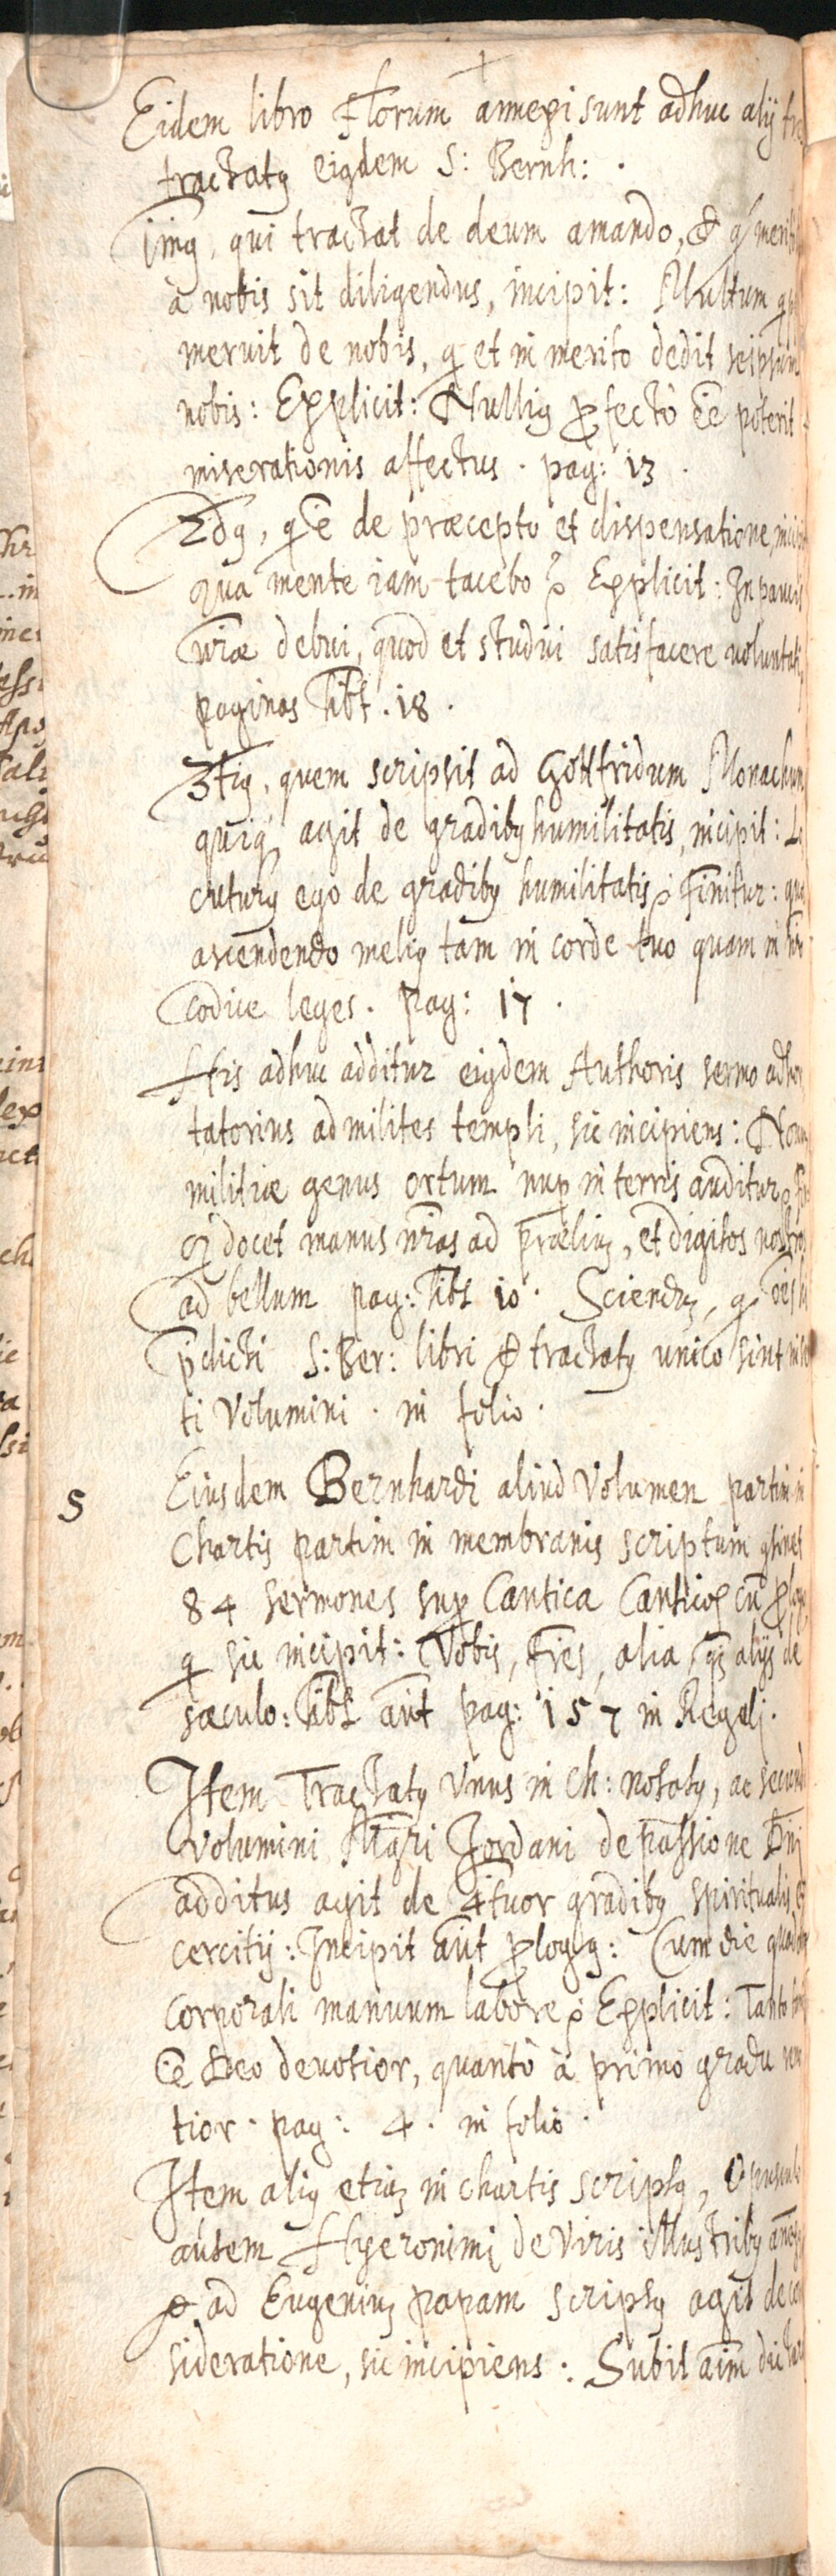 Eidem libro Florum annexi sunt adhuc alij
tractatꝰ eiꝰdem S: Bernh: .
1mꝰ, qui tractat de deum amando, &
à nobis sit diligendus, incipit: Multum
meruit de nobis, q̵ et in merito dedit seipsum
nobis: Explicit: Nulliꝰ ꝓfectò eē poterit
miserationis affectus . pag: 13 .
2dꝰ, q̵ ē de præcepto et dispensatione,
Qua mente iam tacebo Explicit: In paucis
vr̄æ debui, quod et studui satisfacere
paginas hābt . 18 .
3tiꝰ, quem scripsit ad Gottfridum Monachum
quiqꝫ agit de gradibꝰ humilitatis, incipit: Lo
cuturꝰ ego de gradibꝰ humilitatis Finitur:
ascendendo meliꝰ tam in corde tuo quam in nr̄o
codice leges . Pag: 17 .
His adhuc additur eiꝰdem Authoris sermo adhor
tatorius ad milites templi, sic incipiens: Nouum
militiæ genus ortum nuꝑ in terris auditur
q̵ docet manus nr̄as ad præliuꝫ, et digitos nostros
ad bellum pag: hābt 10 . Scienduꝫ, q̵
p̄dicti S: Ber: libri & tractatꝰ unico sint
ti Volumini . in folio .
5 Eiusdem Bernhardi aliud Volumen partim in
Chartis partim in membranis scriptum ꝯtinet
84 sermones suꝑ Cantica Canticoꝝ cū
q̵ sic incipit: Vobis, fr̄es, alia, qꝫ alijs de
sæculo: hābt aūt pag: 157 in Regalj .
Item Tractatꝰ Unus in Ch: notatꝰ, ac
Volumini Mgr̄i Jordani de passione Dn̄j
additus agit de 4tuor gradibꝰ spiritualis ex
ercitij: Incipit aūt ꝓlogꝰ: Cum die quadam
corporali manuum labore Explicit: Tanto
ē Deo deuotior, quantò à primo gradu
tior . pag: 4 . in folio .
Item aliꝰ etiaꝫ in chartis scriptꝰ, Opusculo
autem Hyeronimj de Viris illustribꝰ
& ad Eugeniuꝫ papam scriptꝰ agit de con
sideratione, sic incipiens: Subit aīm